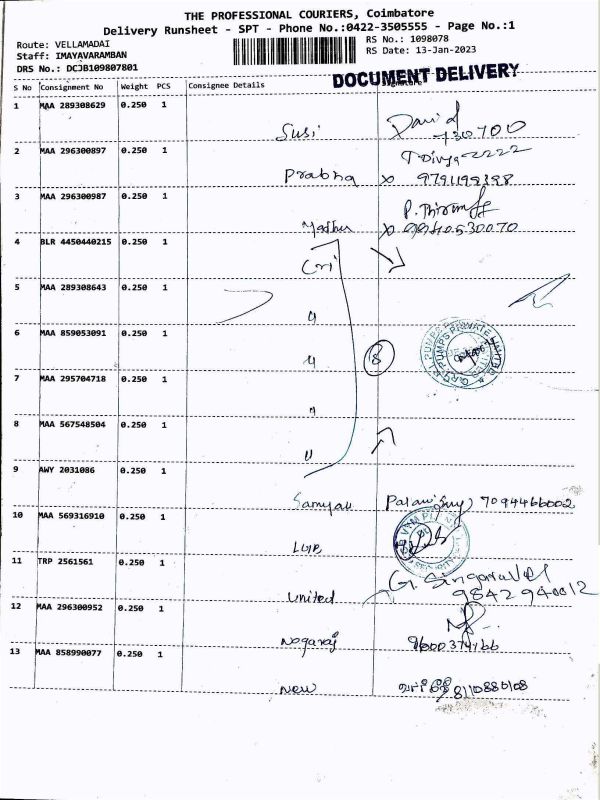 THE PROFESSIONAL COURIERS, Coimbatore
Delivery Runsheet - SPT - Phone No.:0422-3505555 - Page No.:1
Route: VELLAMADAI
RS No.: 1098078
Staff: IMAYAVARAMBAN
RS Date: 13-Jan-2023
DRS No.: DCJB109807801
DOCUMENT DELIVERY
S No Consignment No Weight PCS Consignee Details Signature
1 MAA 289308629 0.250 1
Susi David
730700
2 MAA 296300897 0.250 1
Prabha
3 MAA 296300987 0.250 1
Madhu
4 BLR 4450440215 0.250 1
Cri
5 MAA 289308643 0.250 1
"
6 MAA 859053091 0.250 1
"
C.R.I. PUMPS PRIVATE LIMITED
7 MAA 295704718 0.250 1
"
8 MAA 567548504 0.250 1
"
9 AWY 2031086 0.250 1
7094466002
10 MAA 569316910 0.250 1
11 TRP 2561561 0.250 1
United G. Singaravel
9842940012
12 MAA 296300952 0.250 1
Nagaraj 9600374766
13 MAA 858990077 0.250 1
New 8110880108